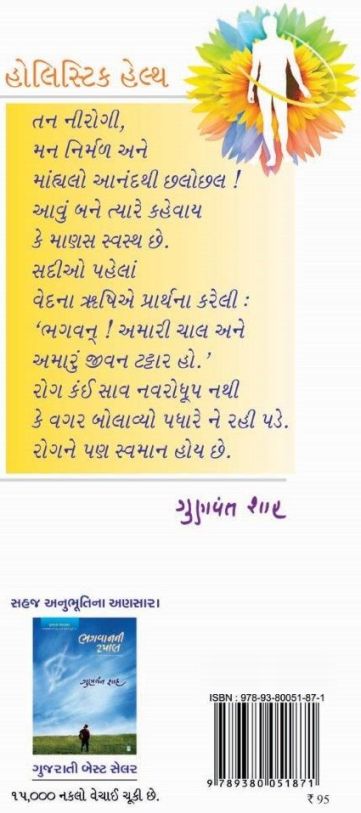 હોલિસ્ટિક હેલ્થ
તન નીરોગી,
મન નિર્મળ અને
માંહ્યલો આનંદથી છલોછલ !
આવું બને ત્યારે કહેવાય
કે માણસ સ્વસ્થ છે.
સદીઓ પહેલાં
વેદના ઋષિએ પ્રાર્થના કરેલી :
‘ભગવન્ ! અમારી ચાલ અને
અમારું જીવન ટટ્ટાર હો.’
રોગ કંઈ સાવ નવરોધૂપ નથી
કે વગર બોલાવ્યો પધારે ને રહી પડે.
રોગને પણ સ્વમાન હોય છે.
ગુણવંત શાહ
સહજ અનુભૂતિના અણસારા
ભગવાનની
ટપાલ
ગુણવંત શાહ
ગુજરાતી બેસ્ટ સેલર
૧૫,૦૦૦ નકલો વેચાઈ ચૂકી છે.
ISBN : 978-93-80051-87-1
9 789380 051871
₹ 95